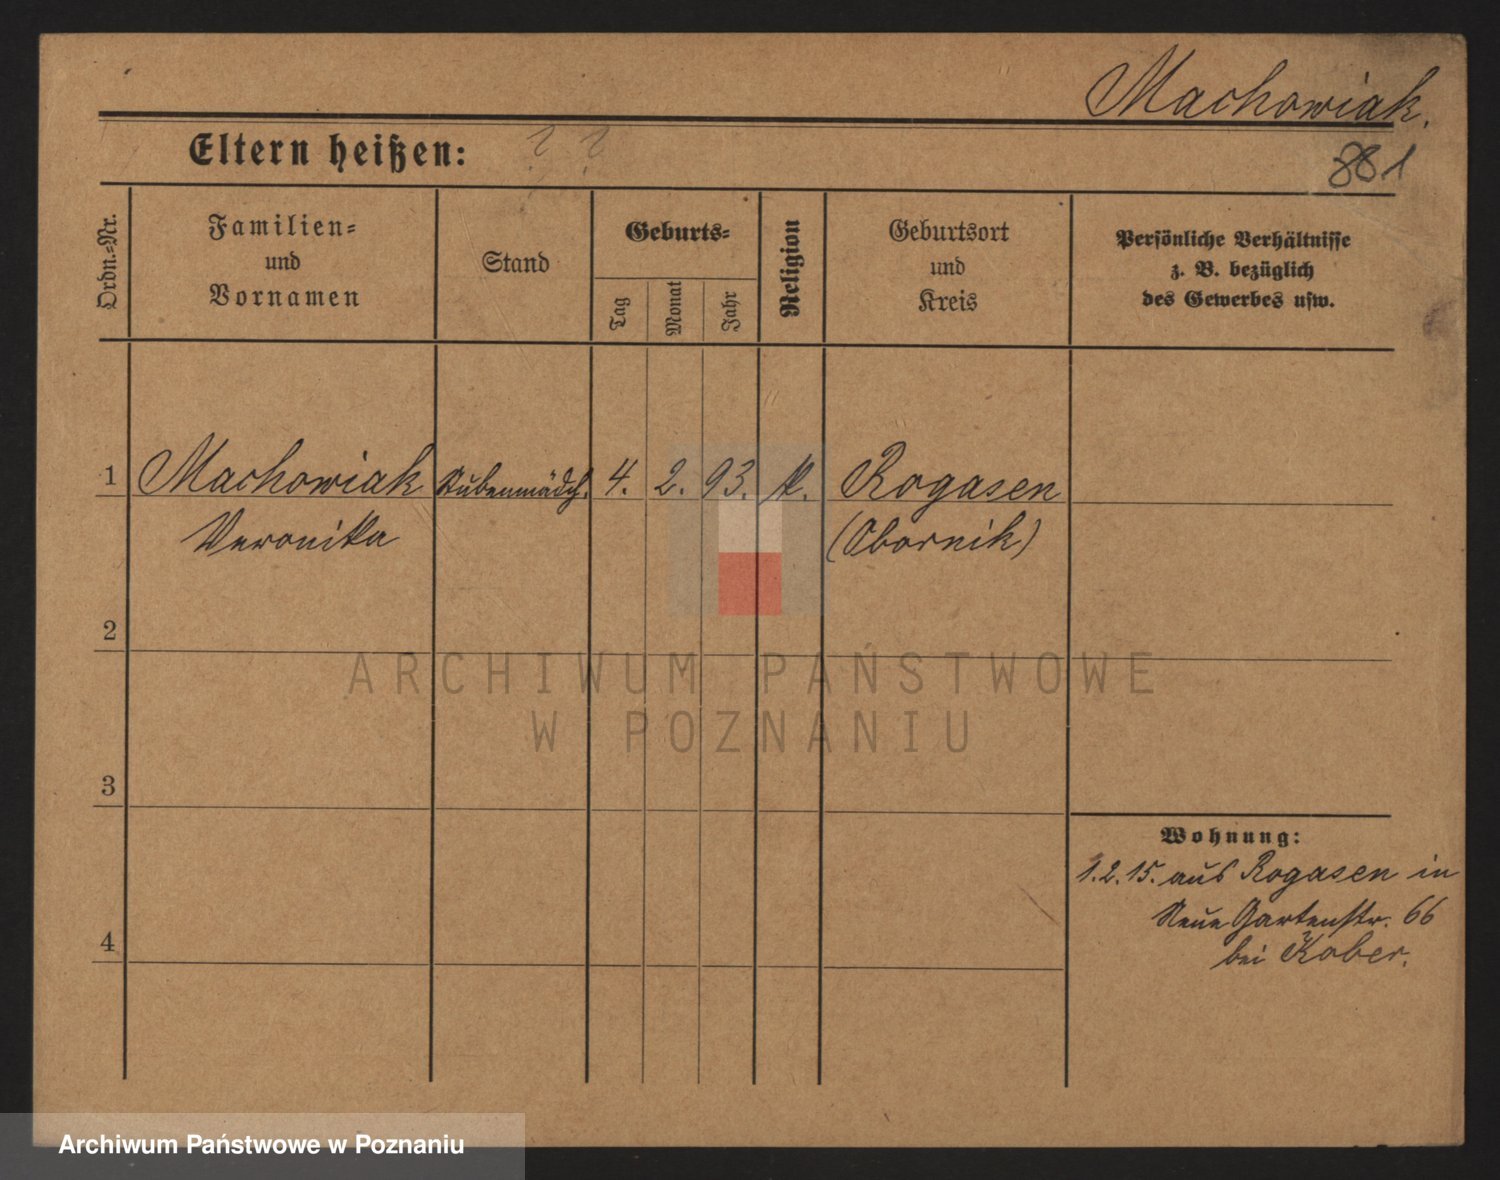 Machowiak.
Eltern heißen: ? ?
881
Ordn.-Nr.
Familien-
und
Vornamen
Stand
Geburts-
Tag
Monat
Jahr
Religion
Geburtsort
und
Kreis
Persönliche Verhältnisse
z. B. bezüglich
des Gewerbes usw.
1 Machowiak Stubenmädch. 4. 2. 93. k. Rogasen
Veronika (Obornik)
2
ARCHIWUM PAŃSTWOWE
W POZNANIU
3
Wohnung:
1.2.15. aus Rogasen in
Neue Gartenstr. 66
bei Kober.
4
Archiwum Państwowe w Poznaniu